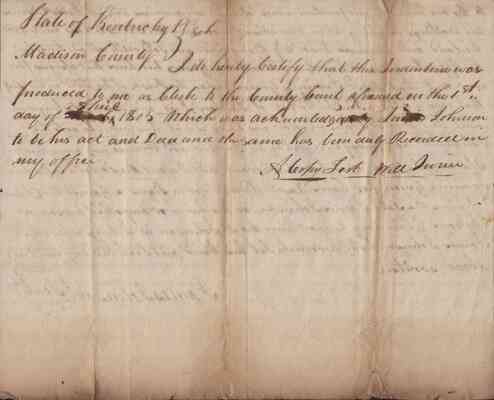 State of Kentucky
Madison County
I do hereby Certify that this Indenture was
produced to me as Clerk to the County Court aforesaid on the 1st
day of June 1815 which was acknowledged by Johnson
to be his act and Deed and the same has been duly Recorded in
my office
A Copy Test Will Irvine